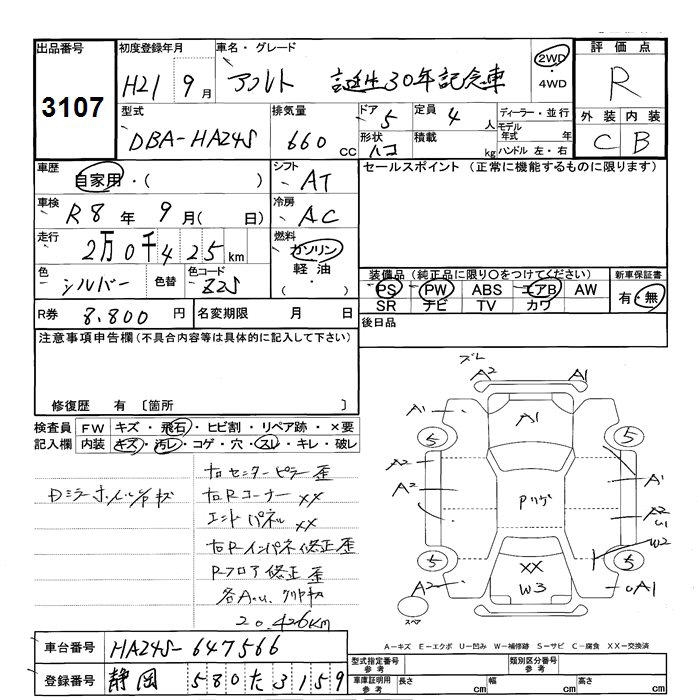 出品番号 初度登録年月 車名・グレード 2WD・4WD 評価点
3107 H21 9月 アルト 誕生30年記念車 R
型式 排気量 ドア 定員 ディーラー・並行 外装 内装
DBA-HA24S 660cc 5 4人 モデル年式 年 C B
形状 ハコ 積載 kg ハンドル 左・右
車歴 自家用・( ) シフト AT セールスポイント (正常に機能するものに限ります)
車検 R8年9月( 日) 冷房 AC
走行 2万0千425km 燃料 ガソリン 軽油 ( ・ )
色 シルバー 色替 色コード Z2S
装備品(純正品に限り○をつけてください) 新車保証書
PS PW ABS エアB AW 有・無
SR ナビ TV カワ
R券 8,800円 名変期限 月 日 後日品
注意事項申告欄(不具合内容等は具体的に記入して下さい)
修復歴 有 〔箇所 〕
検査員記入欄 FW キズ・飛石・ヒビ割・リペア跡・×要
内装 キズ・汚レ・コゲ・穴・スレ・キレ・破レ
右センターピラー歪
右Rコーナー XX
エンドパネル XX
右Rインパネ修正歪
Rフロア修正歪
20,426KM
ズレ
A2 A1
A1 A1
5 5
A2 A1
A2 A2
U1
W2
5 XX 5
A2 W3 A1
スペア
A-キズ E-エクボ U-凹み W-補修跡 S-サビ C-腐食 XX-交換済
車台番号 HA24S-647566
登録番号 静岡 580 た 3159
型式指定番号 参考 類別区分番号 参考
車庫証明用 参考 長さ cm 幅 cm 高さ cm